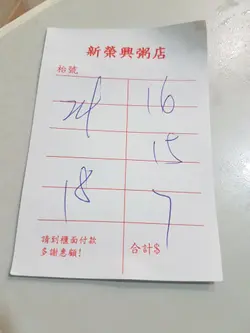 新榮興粥店
枱號
24 16
15
18 7
請到櫃面付款
多謝惠顧!
合計$